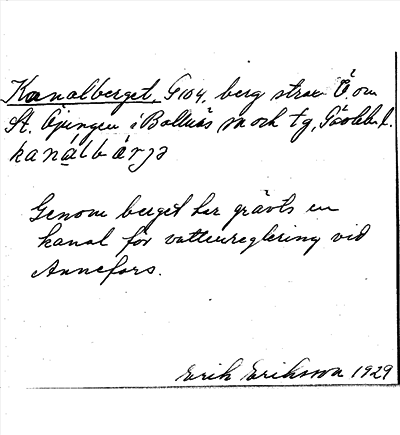 Kanalberget, G104, berg strax Ö om
St. Öjungen i Bollnäs sn och tg, Gävleb. l.
kanalbärjə
Genom berget har grävts en
kanal för vattenreglering vid
Annefors.
Erik Eriksson 1929